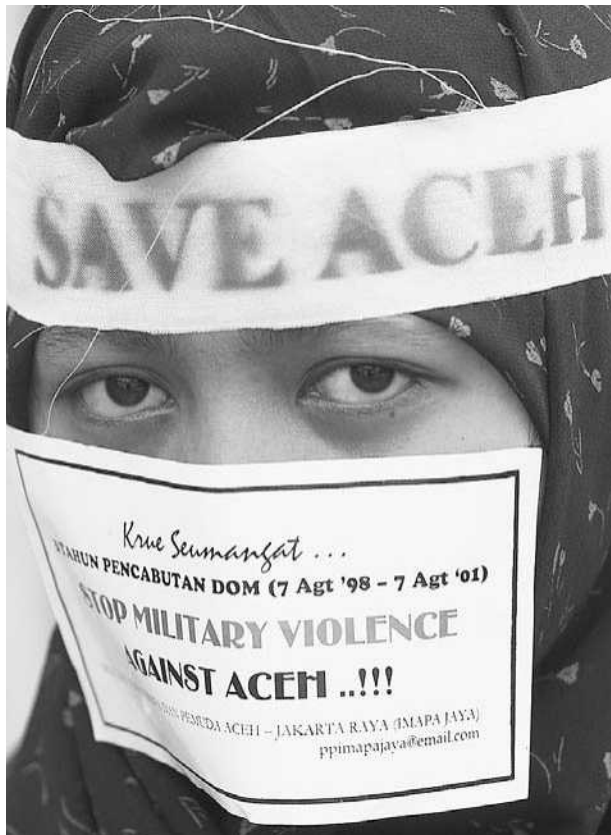 SAVE ACEH
Krue Seumangat ...
TAHUN PENCABUTAN DOM (7 Agt '98 – 7 Agt '01)
STOP MILITARY VIOLENCE
AGAINST ACEH ..!!!
DAN PEMUDA ACEH – JAKARTA RAYA (IMAPA JAYA)
ppimapajaya@email.com